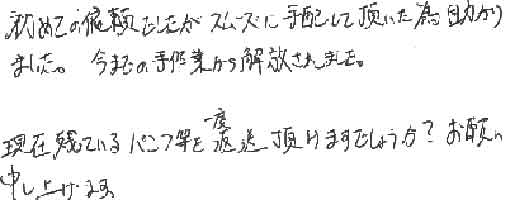 初めての依頼でしたがスムーズに手配して頂いた為助かり
ました。今までの手作業から解放されました。
現在残っているパンフ等を一度返送頂けますでしょうか?お願い
申し上げます